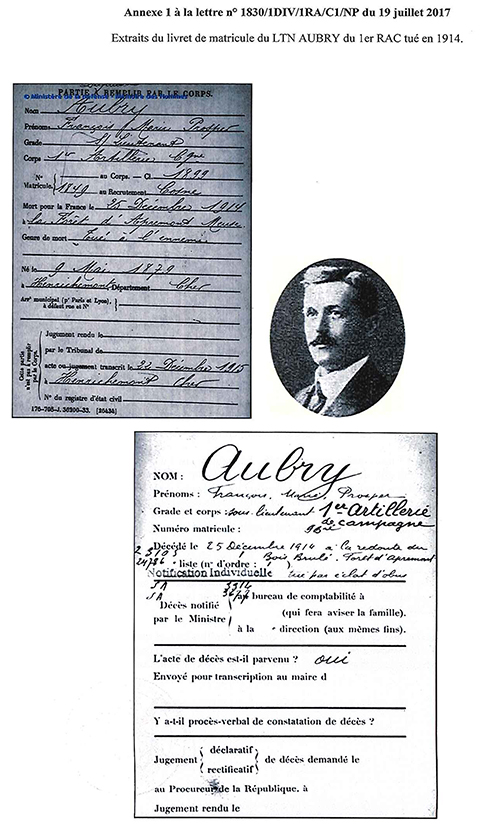 Annexe 1 à la lettre n° 1830/1DIV/1RA/C1/NP du 19 juillet 2017
Extraits du livret de matricule du LTN AUBRY du 1er RAC tué en 1914.
PARTIE À REMPLIR PAR LE CORPS.
© Ministère de la défense - Mémoire des hommes
Nom Aubry
Prénoms François Marie Prosper
Grade S/Lieutenant
Corps 1er Artillerie Cgne
N° au Corps. — Cl 1899
Matricule. 1849 au Recrutement Cosne
Mort pour la France le 25 Décembre 1914
à la Forêt d'Apremont Meuse
Genre de mort Tué à l'ennemi
Né le 9 Mai 1879
à Henrichemont Département Cher
Arrt municipal (pr Paris et Lyon),
à défaut rue et N°
Cette partie n'est pas à remplir par le Corps.
Jugement rendu le
par le Tribunal de
acte ou jugement transcrit le Décembre 1915
à Henrichemont Cher
N° du registre d'état civil
176-708-J. 36200-33. [26434]
NOM : Aubry
Prénoms : François, Marie, Prosper
Grade et corps : sous-lieutenant 1er Artillerie
de campagne
Numéro matricule :
Décédé le 25 Décembre 1914 à la redoute du
Bois Brulé. Forêt d'Apremont
24786 liste (n° d'ordre : )
Notification Individuelle tué par éclat d'obus
JA 3314
JA
Décès notifié bureau de comptabilité à
par le Ministre (qui fera aviser la famille).
à la direction (aux mêmes fins).
L'acte de décès est-il parvenu ? oui
Envoyé pour transcription au maire d
Y a-t-il procès-verbal de constatation de décès ?
Jugement déclaratif rectificatif de décès demandé le
au Procureur de la République. à
Jugement rendu le